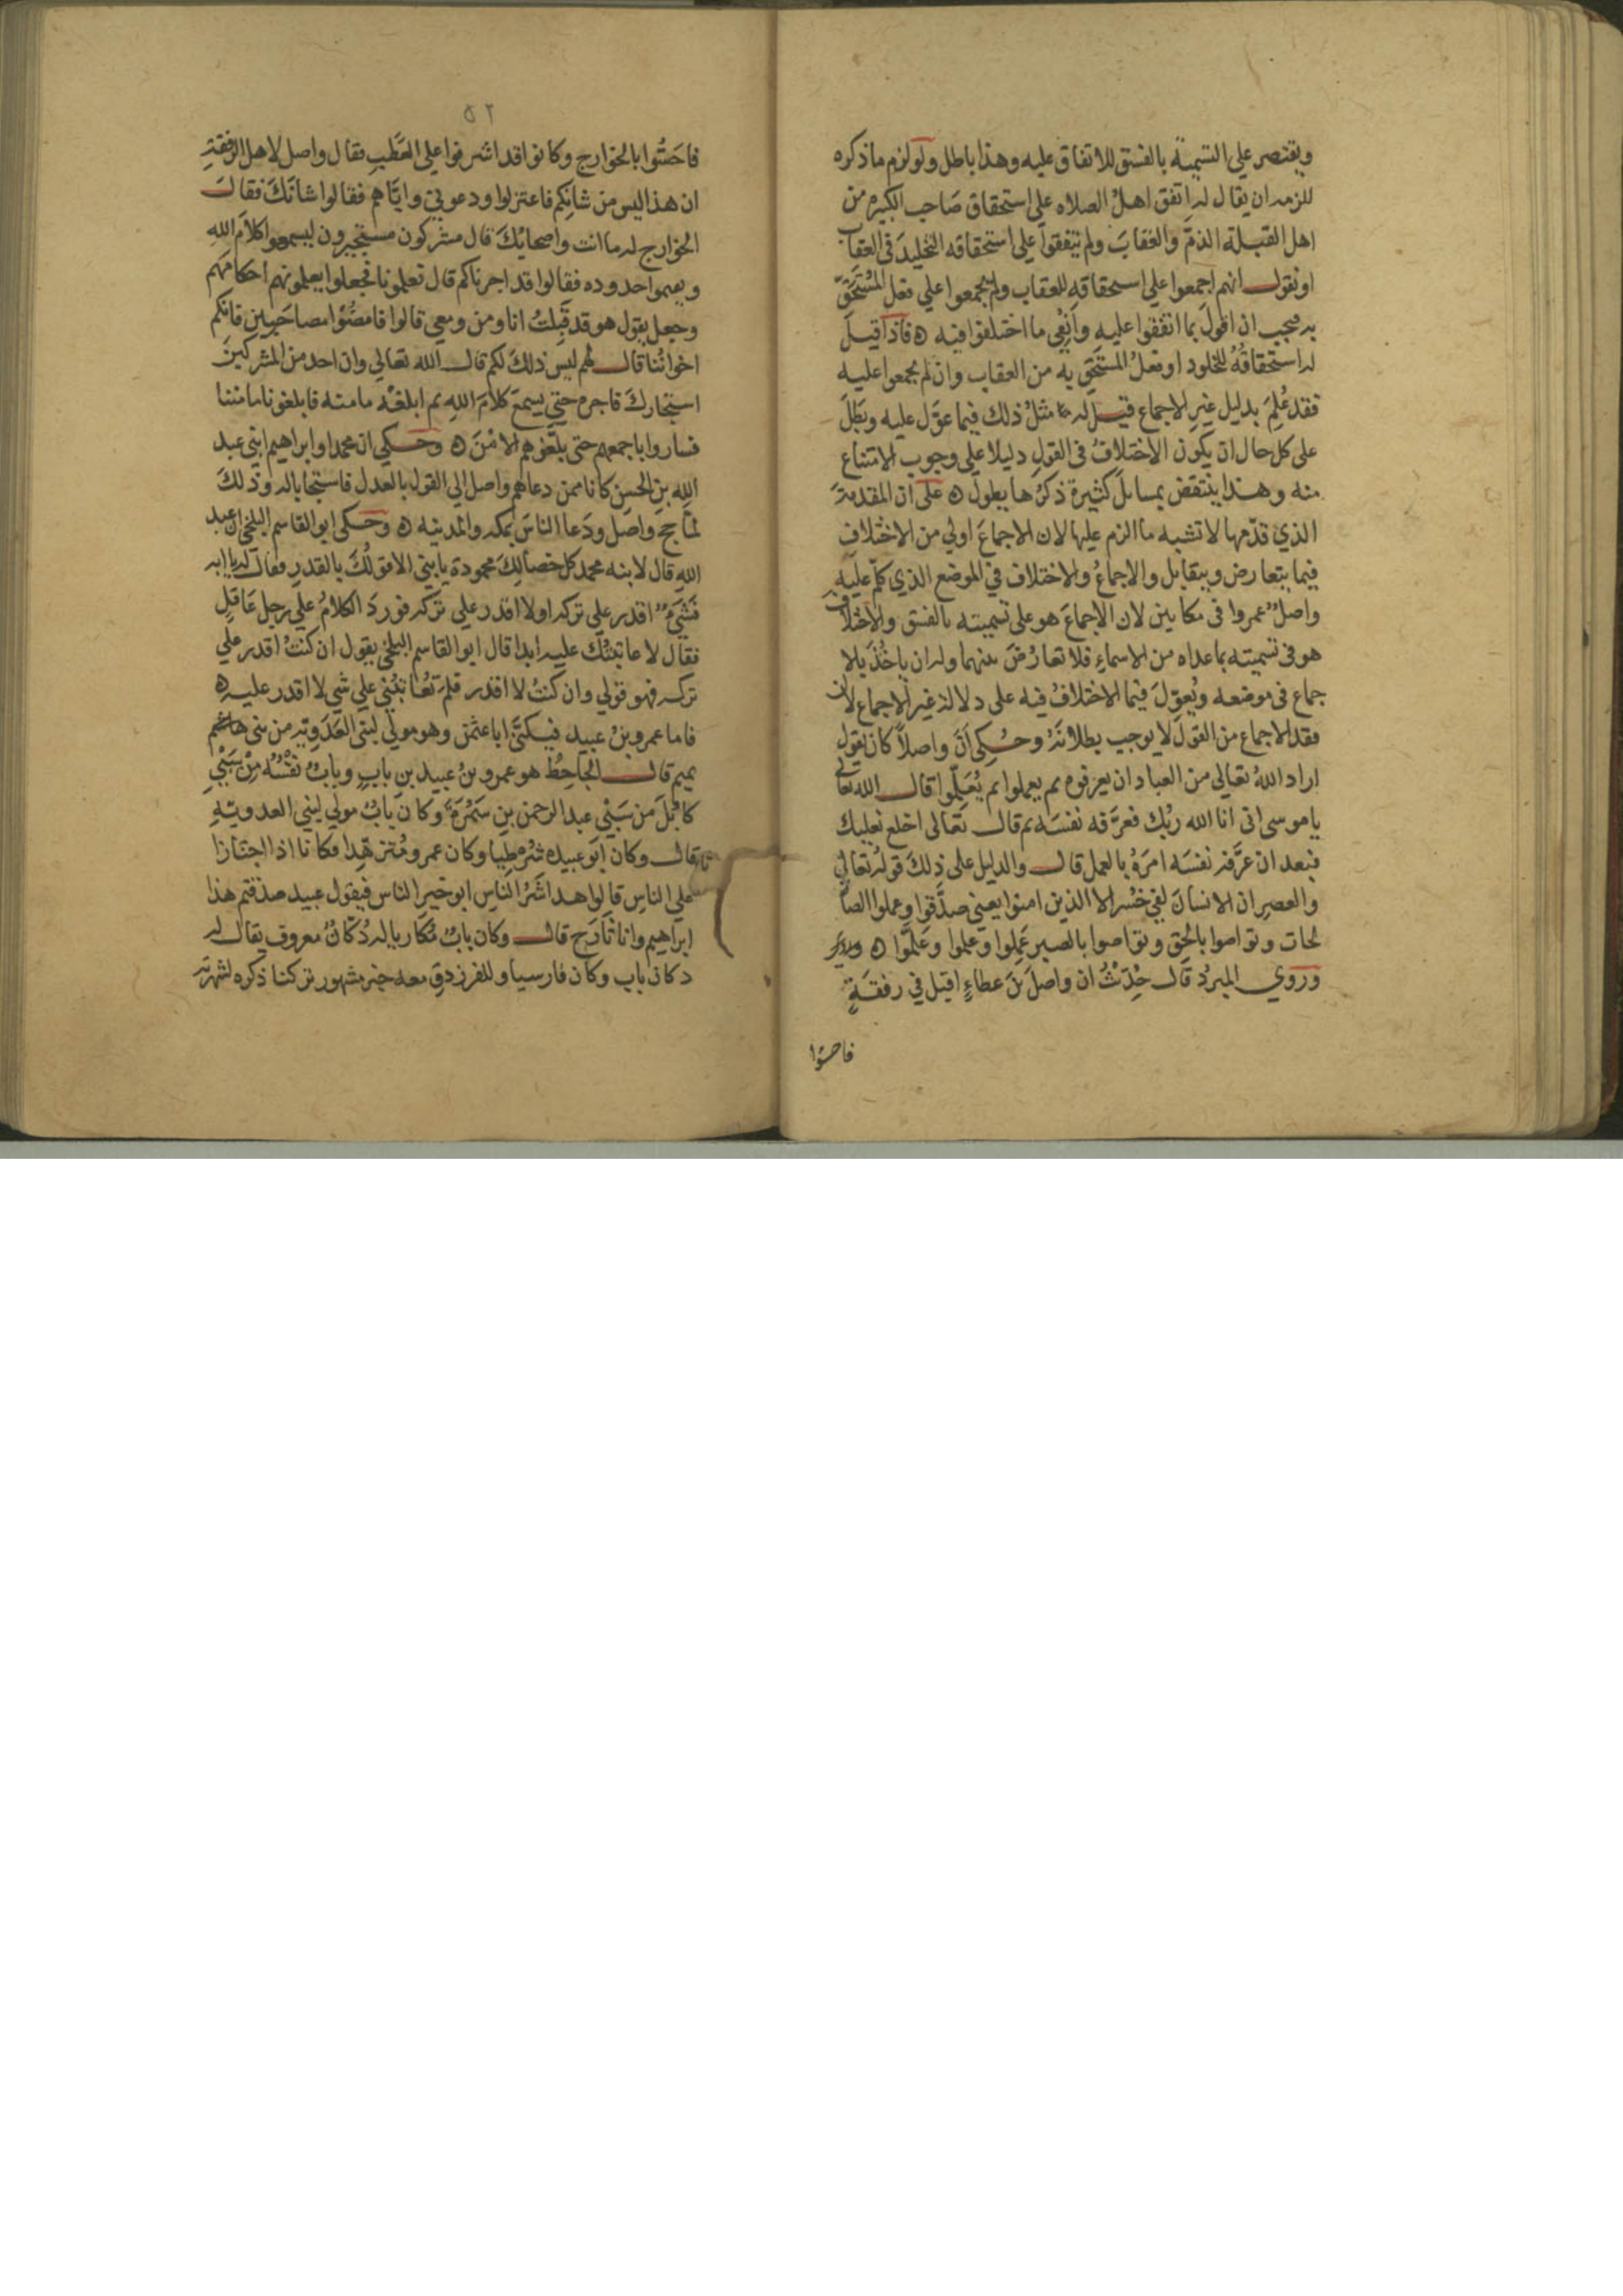 ويقتصر على التسمية بالفسق للاتفاق عليه وهذا باطل ولو لزم ما ذكره
للزمه ان يقال له اتفق اهلُ الصلاه على استحقاق صَاحب الكبيره من
اهل القبلة الذمَّ والعقابَ ولم يتفقوا على استحقاقه التخليدَ في العقاب
او نقول انهم اجمعوا على استحقاقه للعقاب ولم يجمعوا على فعل المُسْتَحَقِّ
به فيجب ان اقولَ بما اتفقوا عليه وانفِى ما اختلفوا فيه ه فاذا قيلَ
له استحقاقُهُ للخلود او فعلُ المستَحَق به من العقاب وان لم يجمعوا عليه
فقد عُلِمَ بدليل غيرِ الاجماع قيل له مثلُ ذلك فيما عوَّل عليه وبَطَلَ
على كل حال ان يكون الاختلافُ في القولِ دليلا على وجوب الامتناع
منه وهذا ينتقض بمسائلَ كثيرة ذكرُها يطول ه على ان المقدمةَ
الذي قدّمها لا تشبه ما الزم عليها لان الاجماعَ اولى من الاختلافِ
فيما يتعارض ويتقابل والاجماعُ والاختلاف في الموضع الذي كلّم عليه
واصلٌ عمروا في مكانين لان الاجماعَ هو على تسميته بالفسق والاختلاف
هو في تسميته بما عداه من الاسماءِ فلا تعارُضَ بينهما وله ان ياخُذَ بالا
جماع في موضعه ويُعوِّلَ فيما الاختلافُ فيه على دلالة غير الاجماع لان
فقد الاجماع من القول لا يوجب بطلانَهُ وحُكِى أنَّ واصلاً كان يقول
اراد اللهُ تعالى من العباد ان يعرفوه ثم يعملوا ثم يُعَلِّموا قال الله تعالى
يا موسى انى انا الله ربُك فعرَّفه نفسَه ثم قال تعالى اخلع نعليك
فبعد ان عرَّفه نفسَه امرَهُ بالعمل قال والدليل على ذلك قولُه تعالى
والعصرِ ان الانسانَ لفي خُسْر الا الذين امنوا يعني صدَّقوا وعملوا الصا
لحات وتواصوا بالحق وتواصوا بالصبر عَمِلوا وعلموا وعَلَّموا ه
وروى المبردُ قال حُدِّثْتُ ان واصلَ بنَ عطاءٍ اقبل في رفقةٍ
فاحسّوا
٥٢
فاحَسُّوا بالخوارج وكانوا قد اشرفوا على العَطَب فقال واصل لاهل الرفقةِ
ان هذا ليس من شانِكم فاعتزلوا ودعوني واياهم فقالوا شانَكَ فقالَ
الخوارج له ما انت واصحابُكَ قال مشركون مستجيرون ليسمعوا كلامَ الله
حدوده فقالوا قد اجرناكم قال تعلمونا فجعلوا يعلمونهم احكامَهم
وجعل يقول هو قد قَبِلتُ انا ومن ومعي قالوا فامضُوْا مصاحَبين فانكم
اخوانُنا قال لهم ليس ذلكَ لكم قال الله تعالى وان احد من المشركينَ
استجاركَ فاجره حتى يسمعَ كلامَ اللهِ ثم ابلغْه مامنه فابلغونا مامننا
فساروا باجمعهم حتى بلّغوهم الامْنَ ه وحكي ان محمدا وابراهيم ابني عبد
اللهِ بنِ الحسنِ كانا ممن دعاهم واصل الى القول بالعدل فاستجابا له وذلكَ
لمّا حج واصل ودَعا الناسَ بمكه والمدينه ه وحكى ابو القاسم البلخي ان عبد
اللهِ قال لابنه محمد كل خصالِكَ محمودة يابنى الا قولُكَ بالقدرِ فقال له يا ابه
فَشَيءٌ اقدر على تركه او لا اقدر على تركه فورد الكلامُ على رجلٍ عَاقلٍ
فقال لا عاتبتُك عليه ابدا قال ابو القاسم البلخي يقول ان كنتُ اقدر على
تركه فهو قولي وان كنتُ لا اقدر فلم تعاتبُني على شي لا اقدر عليه ه
فاما عمرو بنُ عبيد فيكنّى ابا عثمن وهو مولى لبنى العَدَويّه من بنى
تميم قال الجاحِظُ هو عمرو بنُ عبيد بنِ بابٍ وبابٌ نفسُه مِنْ سَبْيِ
كابُلَ من سَبْيِ عبد الرحمن بنِ سَمُرَة وكان بابٌ مولى لبني العدويّةِ
قال وكان ابوه عبيد شُرَطِيا وكان عمرو مُتزهّدا فكانا اذا اجتازا
على الناسِ قالوا هذا اشَرُّ الناسِ ابو خيرِ الناس فيقول عبيد صدقتم هذا
ابراهيم وانا تارَح قال وكان بابٌ مُكاريا له دُكّانٌ معروف يقال له
دكان باب وكان فارسيا وللفرزدقِ معه خبر مشهور تركنا ذكره لشهرته